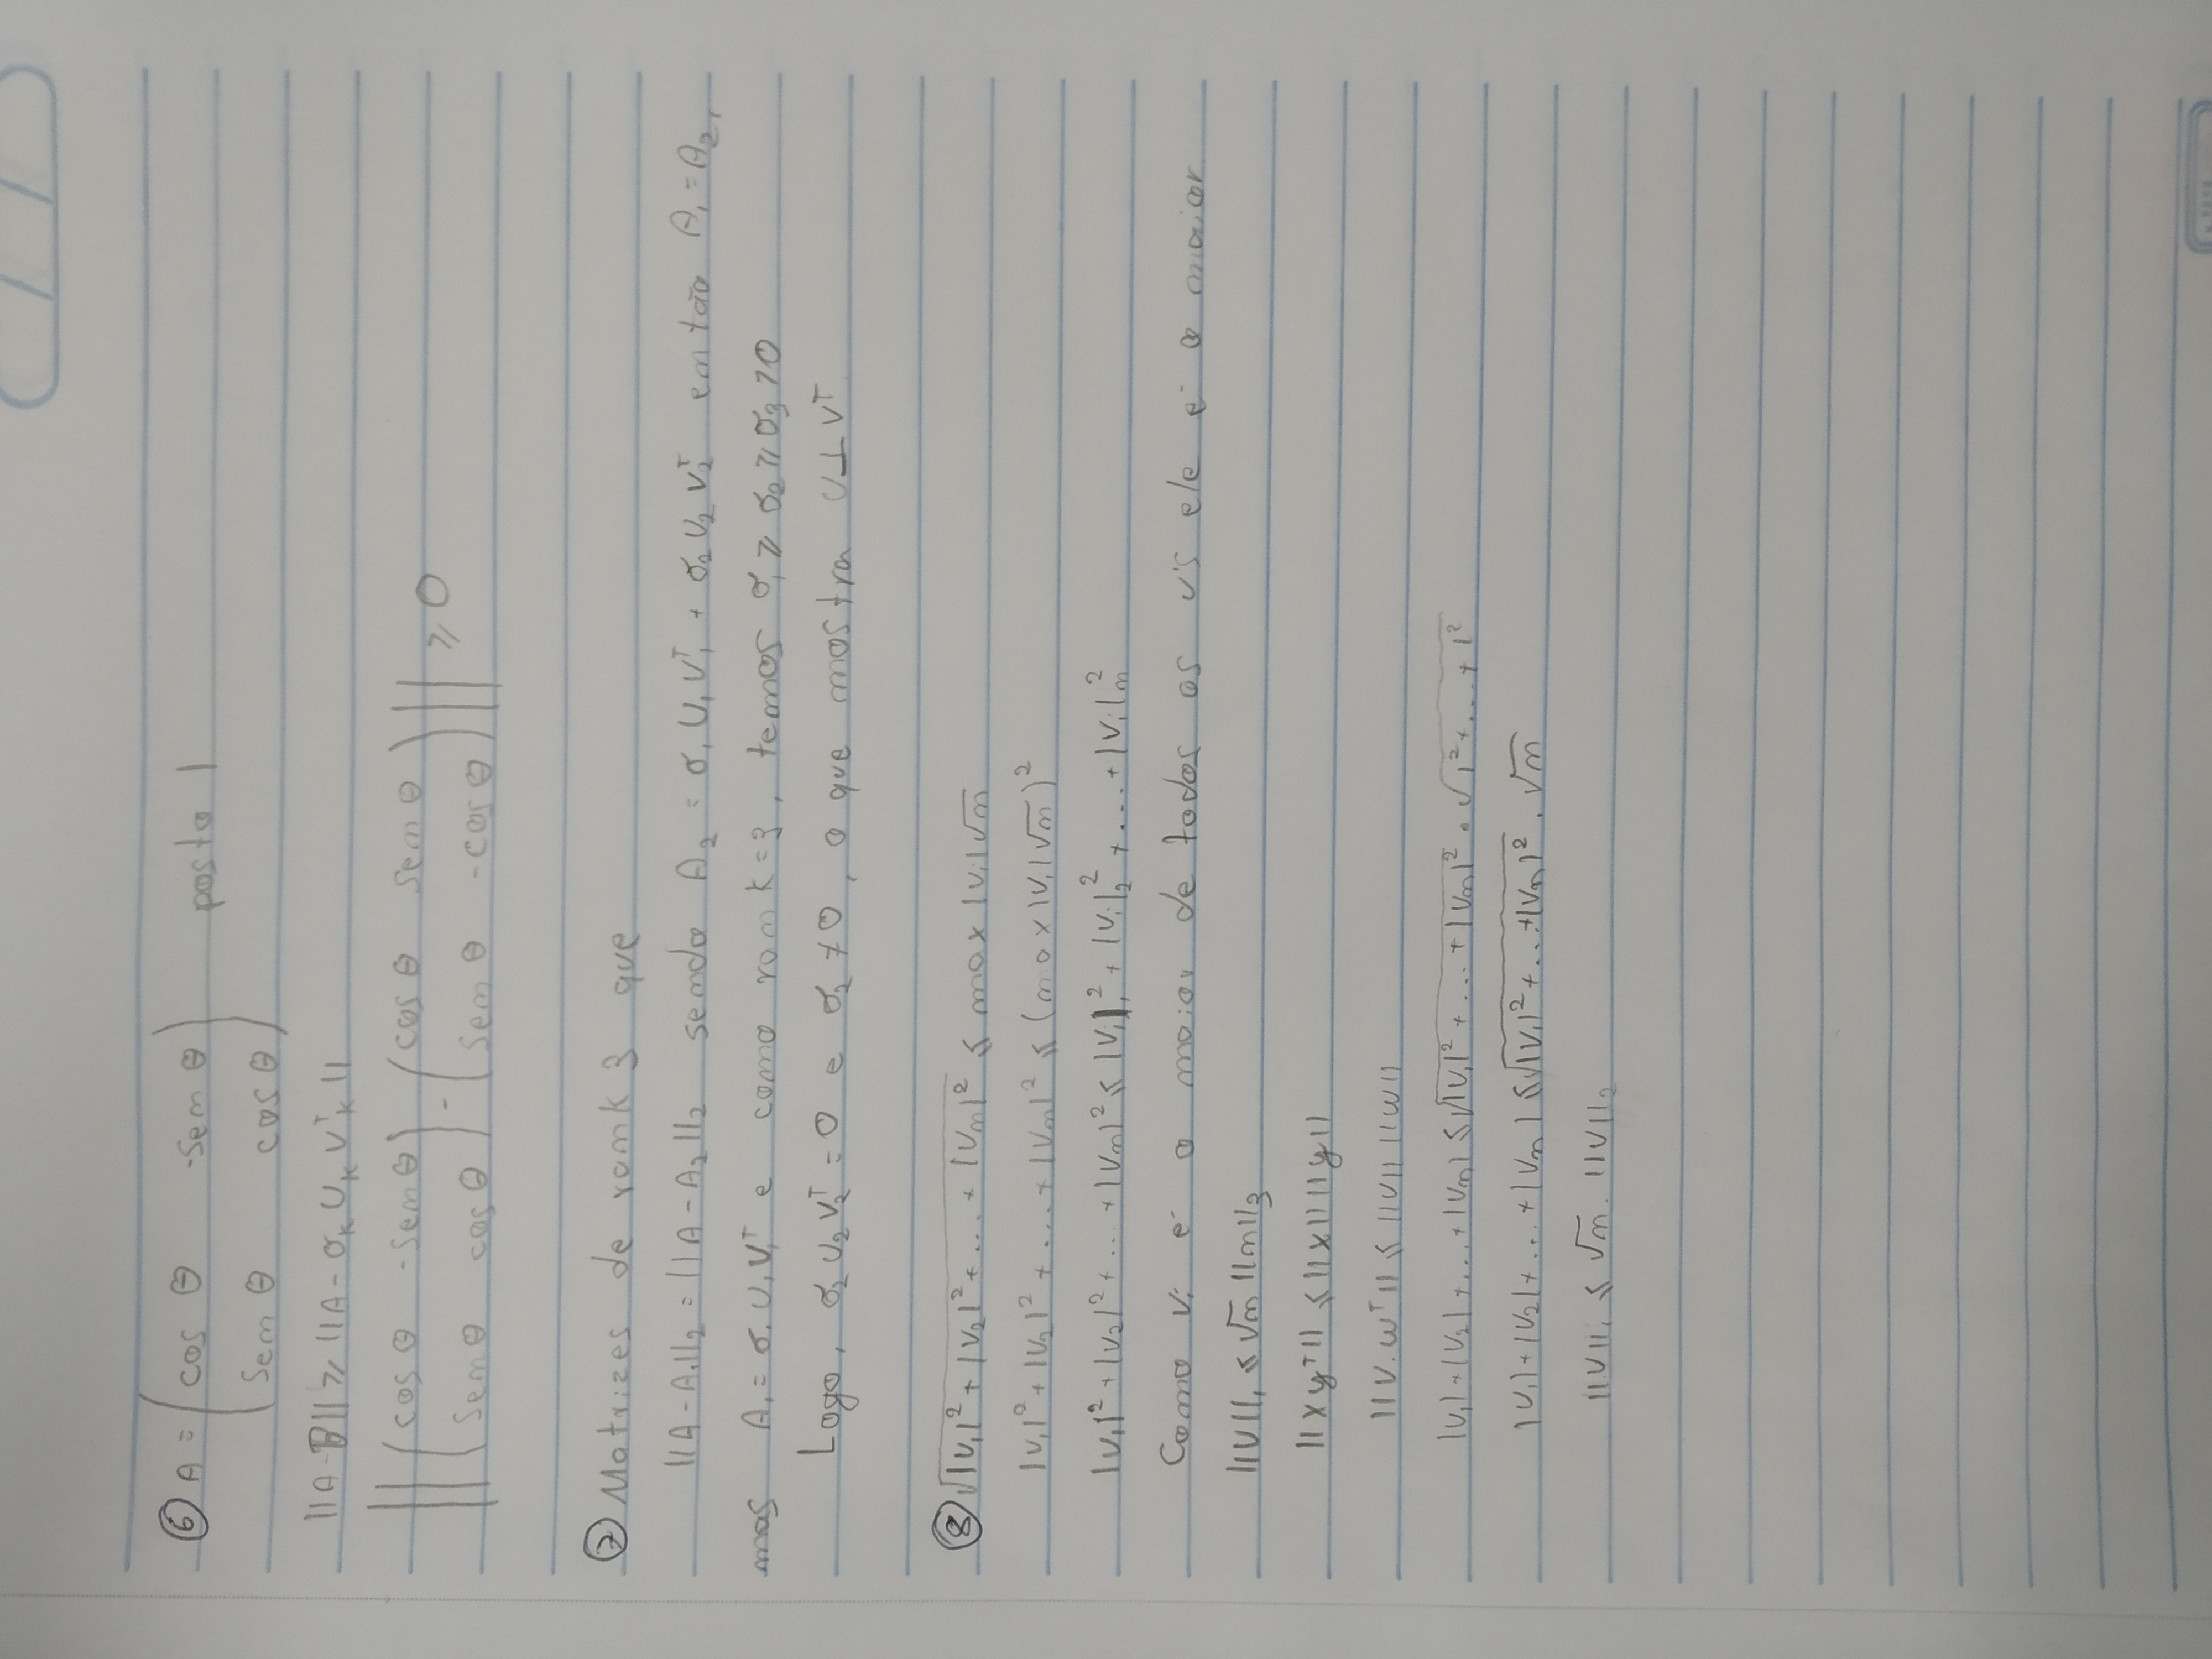 ⑥ A = (cos θ -sen θ posto 1
sen θ cos θ)
||A-B|| ≥ ||A - σₖ Uₖ Vₖᵀ||
||(cos θ -sen θ) - (cos θ sen θ)|| ≥ 0
(sen θ cos θ) (sen θ -cos θ)
⑦ Matrizes de rank 3 que
||A-A₁||₂ = ||A-A₂||₂ sendo A₂ = σ₁ U₁ V₁ᵀ + σ₂ U₂ V₂ᵀ então A₁ = A₂,
mas A₁ = σ₁ U₁ V₁ᵀ e como rank = 3, temos σ₁ ≥ σ₂ ≥ σ₃ > 0
Logo, σ₂ U₂ V₂ᵀ = 0 e σ₂ ≠ 0, o que mostra U ⊥ Vᵀ
⑧ √|V₁|² + |V₂|² + ... + |Vn|² ≤ max |Vi| √n
|V₁|² + |V₂|² + ... + |Vn|² ≤ (max |Vi| √n)²
|V₁|² + |V₂|² + ... + |Vn|² ≤ |Vi|₁² + |Vi|₂² + ... + |Vi|n²
Como Vi é o maior de todos os v's ele é o maior
||V||₁ ≤ √n ||n||₃
||x yᵀ|| ≤ ||x|| ||y||
||V.wᵀ|| ≤ ||V|| ||w||
|V₁| + |V₂| + ... + |Vn| ≤ √|V₁|² + ... + |Vn|² . √1² + ... + 1²
|V₁| + |V₂| + ... + |Vn| ≤ √|V₁|² + ... + |Vn|² . √n
||V||₁ ≤ √n . ||V||₂